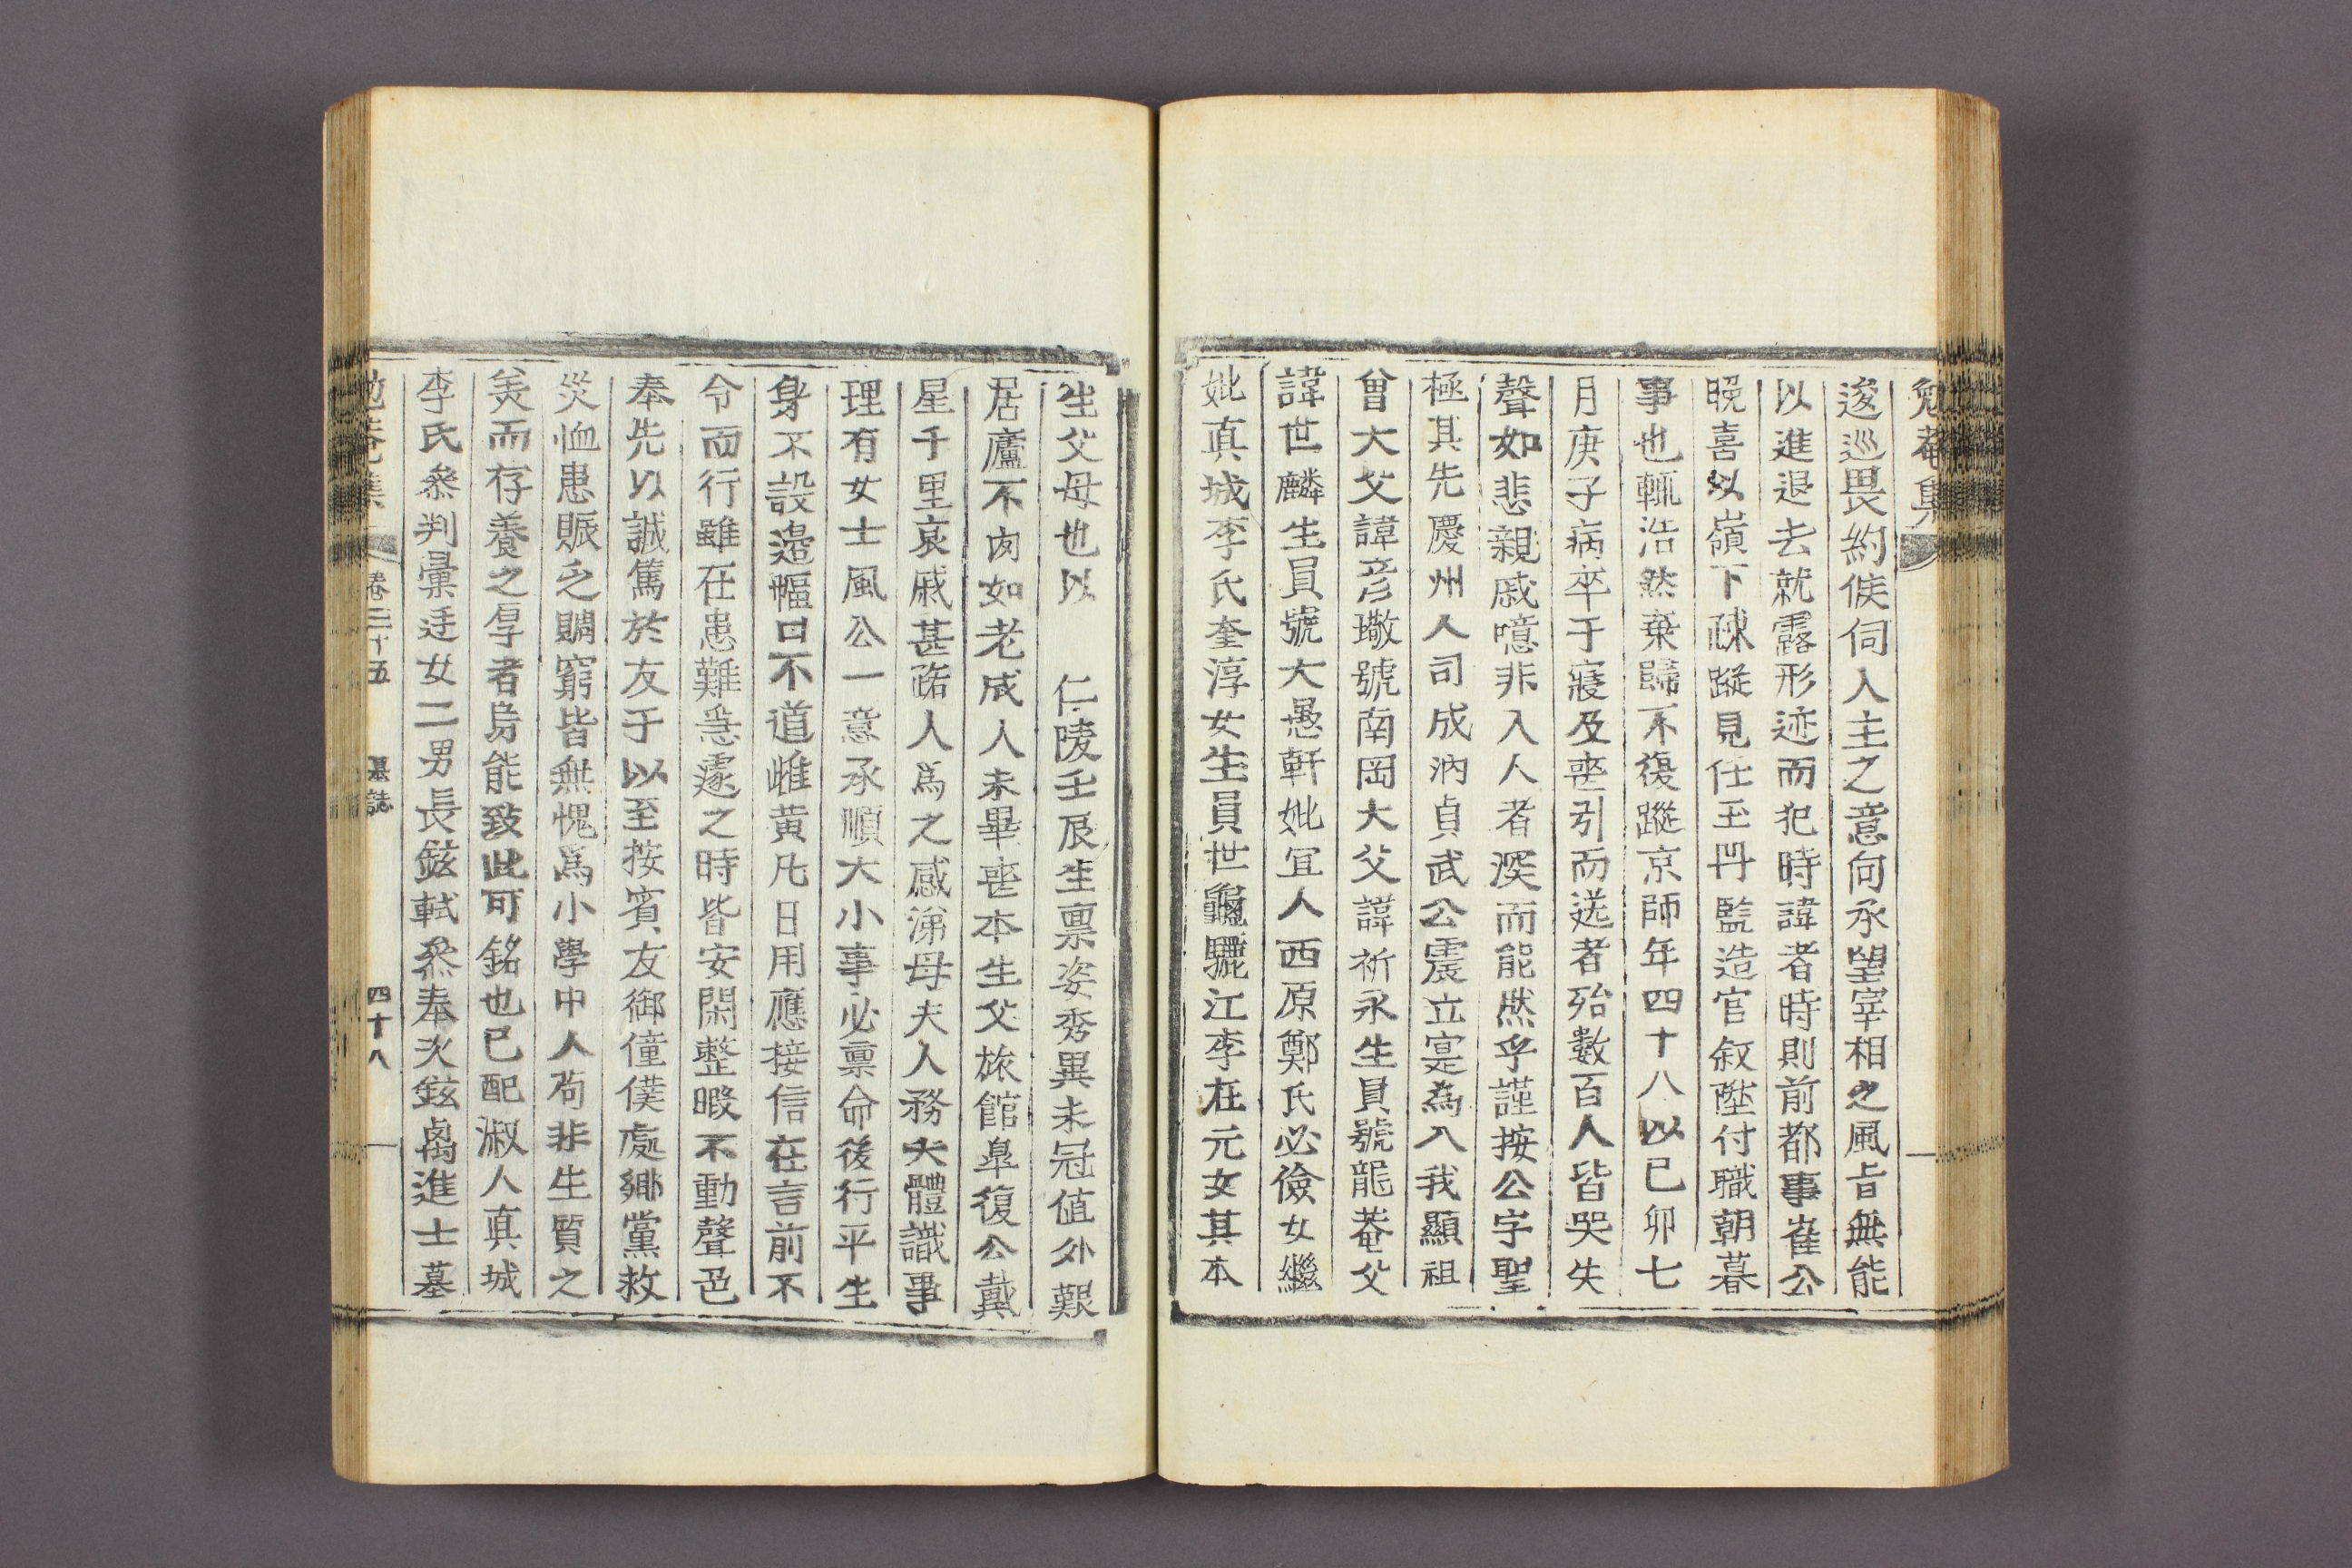 勉菴集
逡巡畏約候伺人主之意向承望宰相之風旨無能
以進退去就露形迹而犯時諱者時則前都事崔公
晩喜以嶺下疎蹤見任玉冊監造官叙陞付職朝暮
事也輒浩然棄歸不復蹤京師年四十八以己卯七
月庚子病卒于寢及喪引而送者殆數百人皆哭失
聲如悲親戚噫非入人者深而能然乎謹按公字聖
極其先慶州人司成汭貞武公震立寔爲入我顯祖
曾大父諱彦璥號南岡大父諱祈永生員號龍菴父
諱世麟生員號大愚軒妣宜人西原鄭氏必儉女繼
妣真城李氏奎淳女生員世龜驪江李在元女其本
生父母也以 仁陵壬辰生禀姿秀異未冠值外艱
居廬不肉如老成人未畢喪本生父旅館臯復公戴
星千里哀戚甚䧟人爲之感涕母夫人務大體識事
理有女士風公一意承順大小事必禀命後行平生
身不設邉幅口不道雌黄凡日用應接信在言前不
令而行雖在患難急遽之時皆安閑整暇不動聲色
奉先以誠篤於友于以至按賓友御僮僕處鄕黨救
災恤患賑乏賙窮皆無愧爲小學中人苟非生質之
美而存養之厚者曷能致此可銘也已配淑人真城
李氏叅判彙迋女二男長鉉軾叅奉次鉉禼進士墓
勉菴集 卷三十五 墓誌 四十八